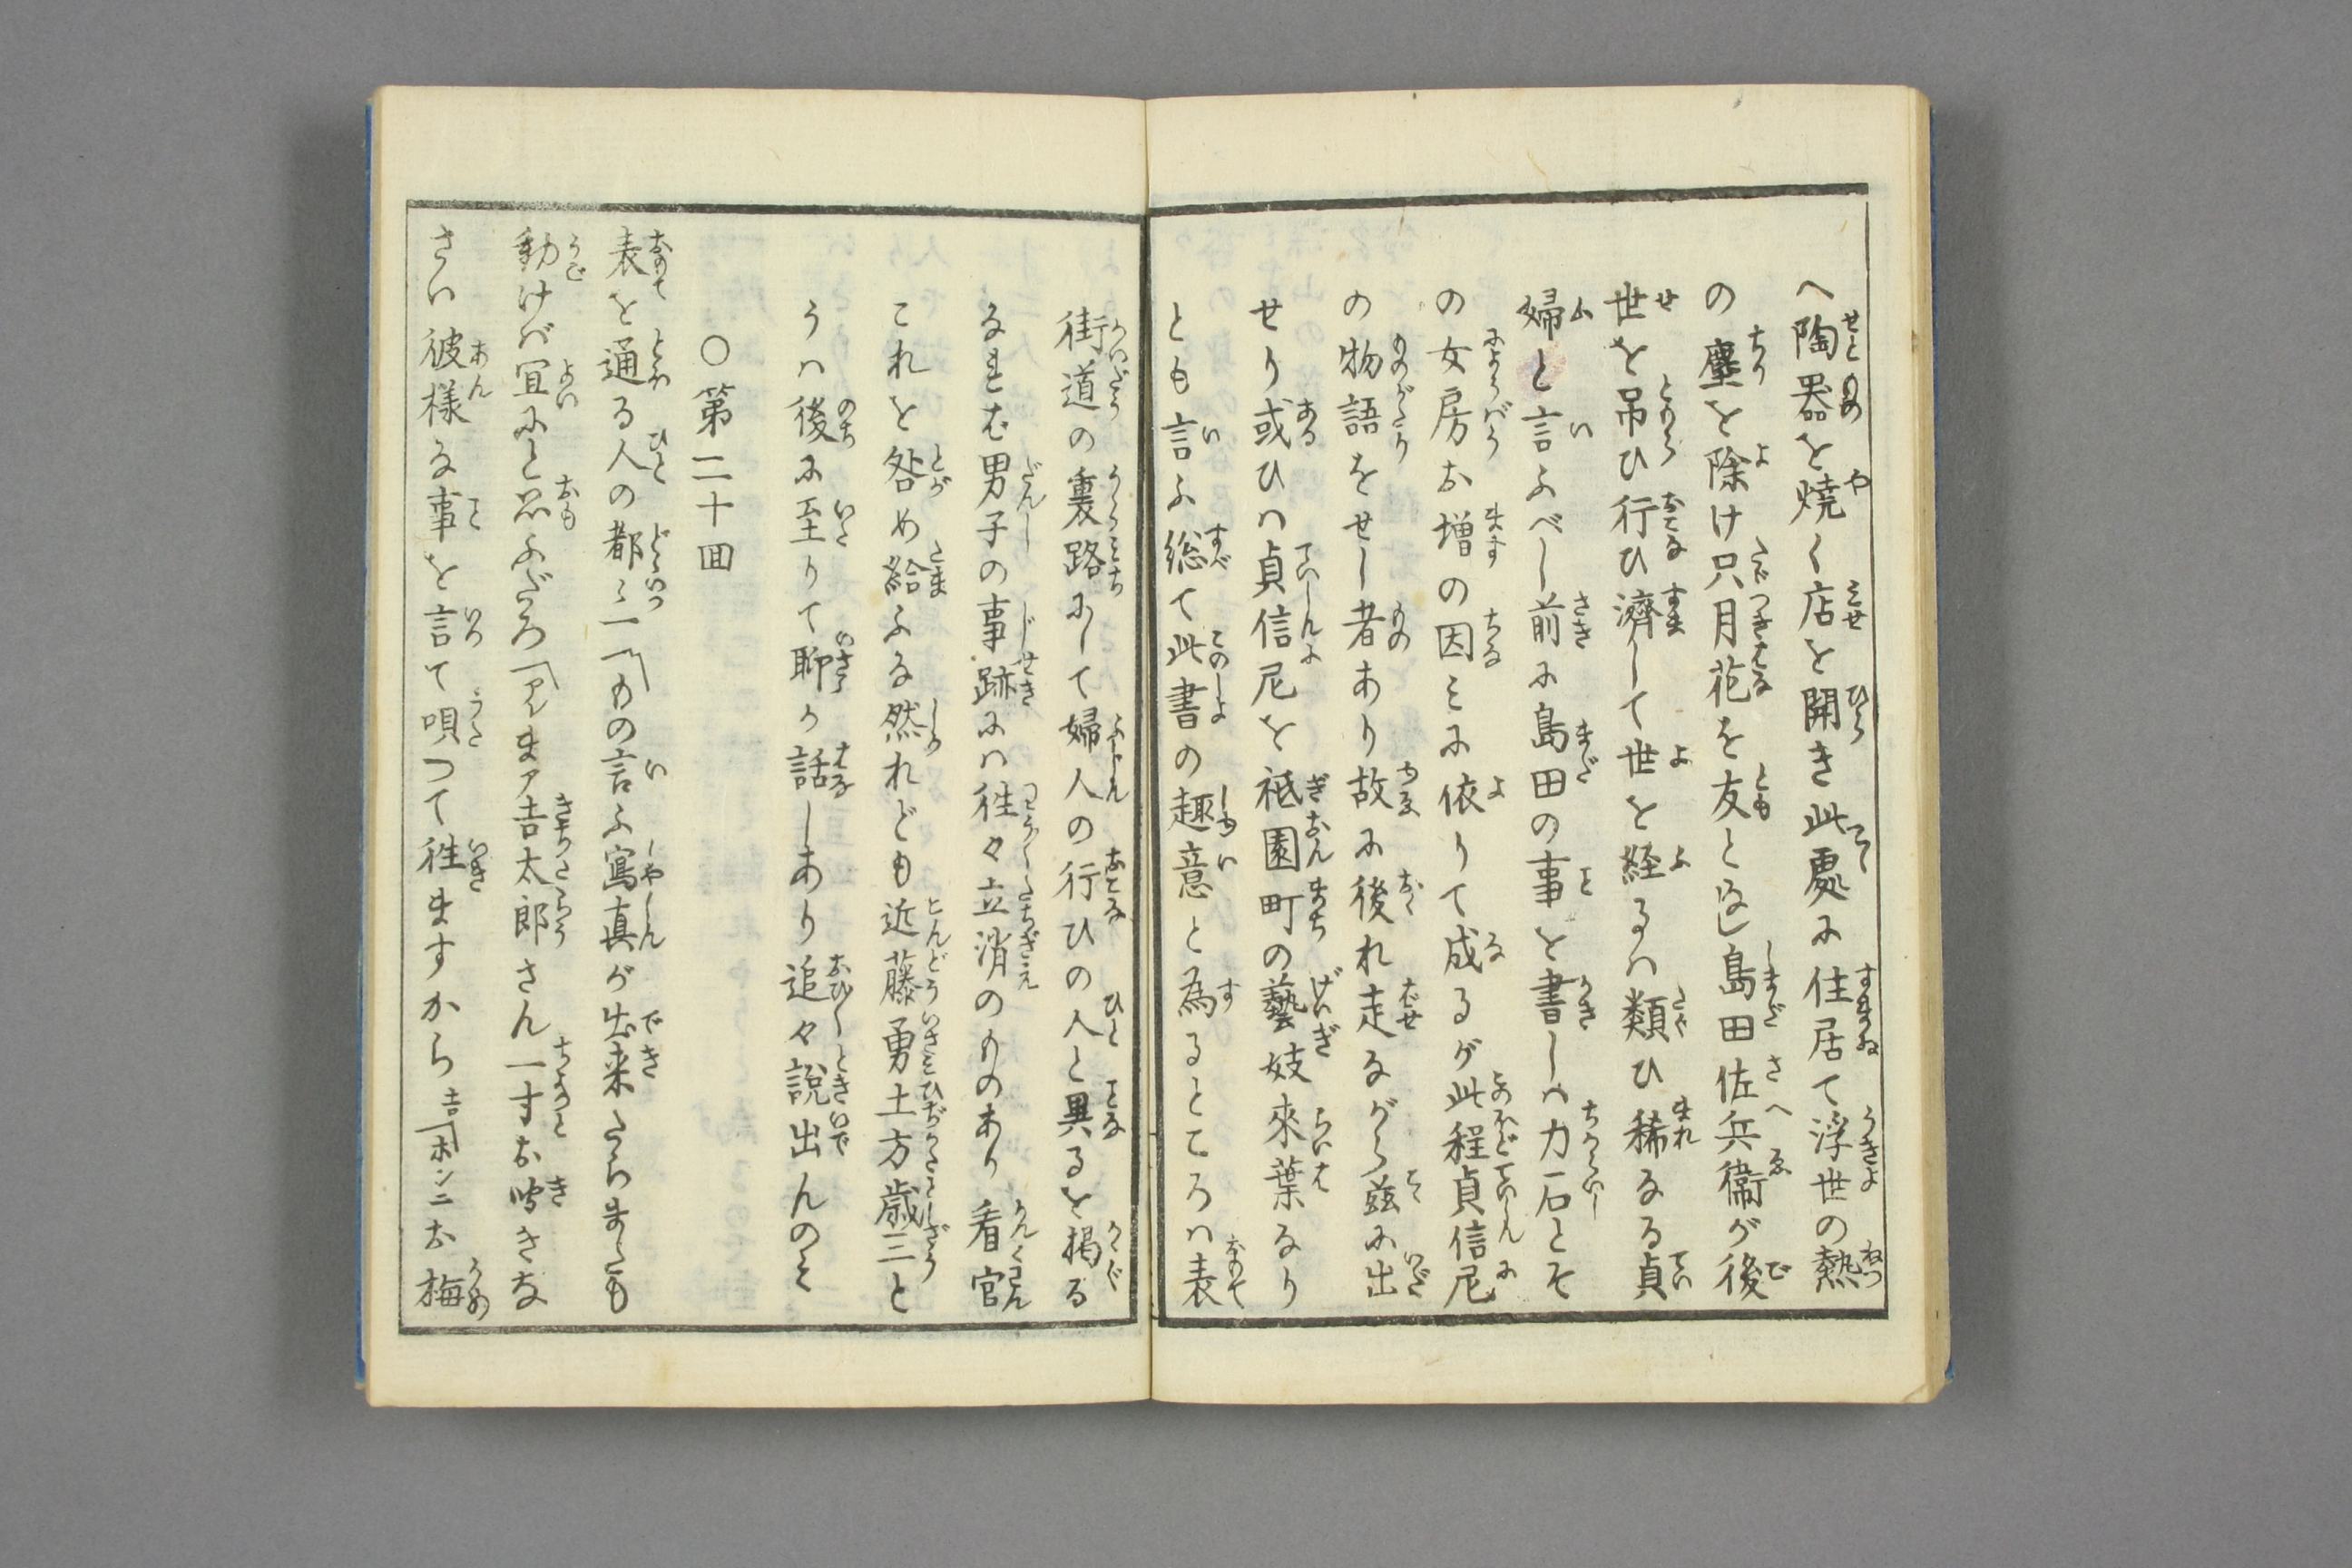 へ陶器を焼く店を開き此處に住居て浮世の熱
の塵を除け只月花を友となし島田佐兵衞が後
世を吊ひ行ひ濟して世を経るハ類ひ稀なる貞
婦と言ふべし前に島田の事を書しハ力石とそ
の女房お増の因ミに依りて成るが此程貞信尼
の物語をせし者あり故に後れ走ながら茲に出
せり或ひハ貞信尼を祗園町の藝妓來葉なり
とも言ふ総て此書の趣意と為るところハ表
街道の裏路にして婦人の行ひの人と異るを掲る
なれど男子の事跡にハ徃々立消のものあり看官
これを咎め給ふな然れども近藤勇土方歳三と
うハ後に至りて聊か話しあり追々說出んのミ
○第二十回
表を通る人の都々一「もの言ふ寫真が出来たらまたも
動けバ宜にと思ふだろ「アレまア吉太郎さん一寸お聞きな
さい彼様な事を言て唄つて徃ますから吉「ホンニお梅